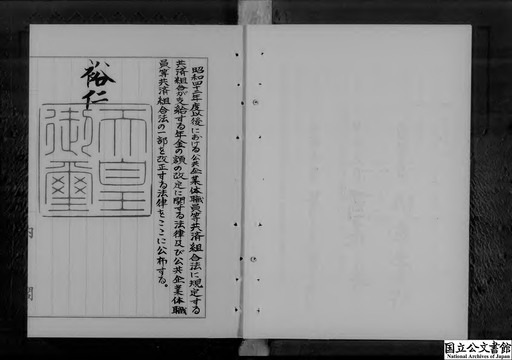 昭和四十三年度以後における公共企業体職員等共済組合法に規定する
共済組合が支給する年金の額の改定に関する法律及び公共企業体職
員等共済組合法の一部を改正する法律をここに公布する。
裕仁
天皇
御璽
内閣
国立公文書館
National Archives of Japan